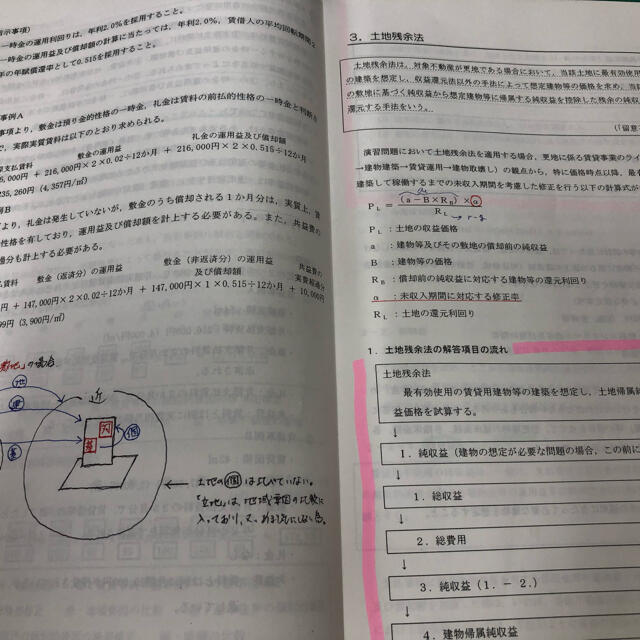 示事項)
一時金の運用利回りは、年利2.0%を採用すること。
一時金の運用益及び償却額の計算に当たっては、年利2.0%、賃借人の平均回転期間2
年の年賦償還率として0.515を採用すること。
事例A
事項より、敷金は預り金的性格の一時金、礼金は賃料の前払的性格の一時金と判断さ
で、実際実質賃料は以下のとおり求められる。
支払賃料 敷金の運用益 礼金の運用益及び償却額
6,000円 + 216,000円×2×0.02÷12か月 + 216,000円×2×0.515÷12か月
235,260円 (4,357円/㎡)
例B
より、礼金は発生していないが、敷金のうち償却される1か月分は、実質上、賃
性格を有しており、運用益及び償却額を計上する必要がある。また、共益費の
過分も計上する必要がある。
賃料 敷金(返済分)の運用益 敷金(非返済分)の運用益及び償却額 共益費の実費超過分
円 + 147,000円×2×0.02÷12か月 + 147,000円×1×0.515÷12か月 + 10,000
99円 (3,900円/㎡)
の場合
近
地
建
基
個
土地の個は比べていない。
「立地」は、地域要因の比較に
入っており、
3.土地残余法
土地残余法は、対象不動産が更地である場合において、当該土地に最有効使用
の建築を想定し、収益還元法以外の手法によって想定建物等の価格を求め、当該
の敷地に基づく純収益から想定建物等に帰属する純収益を控除した残余の純収益
還元する手法をいう。
(「留意
演習問題において土地残余法を適用する場合、更地に係る賃貸事業のライ
→建物建築→賃貸運用→建物取壊し)の観点から、特に価格時点以降、最有
建築して稼働するまでの未収入期間を考慮した修正を行う以下の計算式が
PL=(a-B×RB)×α
RL
→r-g
PL :土地の収益価格
a :建物等及びその敷地の償却前の純収益
B :建物等の価格
RB :償却前の純収益に対応する建物等の還元利回り
α :未収入期間に対応する修正率
RL :土地の還元利回り
1.土地残余法の解答項目の流れ
土地残余法
最有効使用の賃貸用建物等の建築を想定し、土地帰属純
益価格を試算する。
↓
1.純収益(建物の想定が必要な問題の場合、この前に
↓
1.総収益
↓
2.総費用
↓
3.純収益(1.-2.)
↓
4.建物帰属純収益